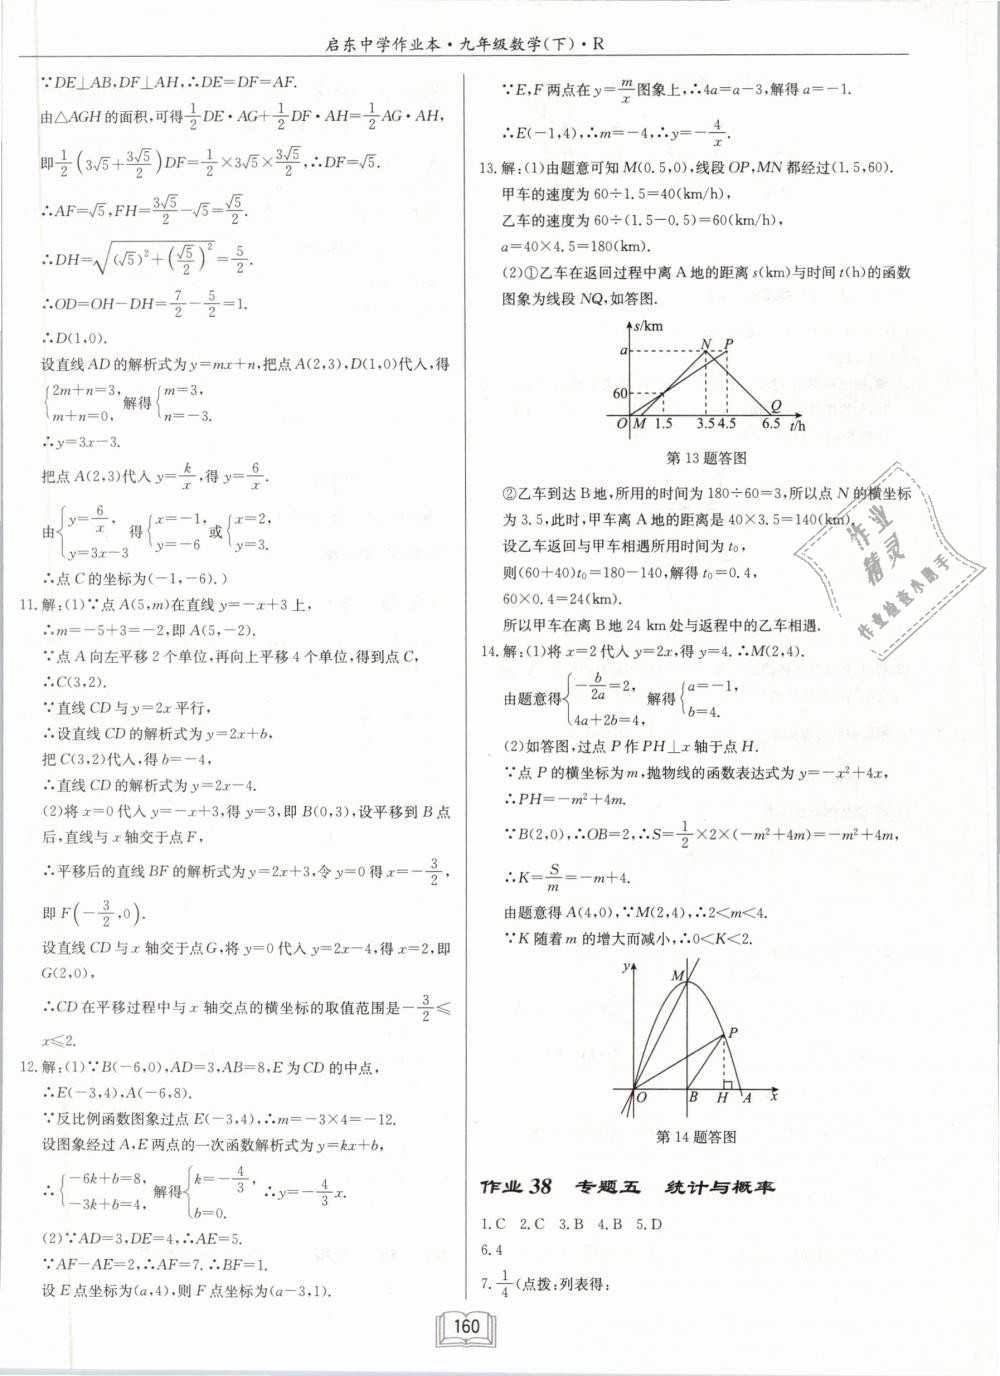 启东中学作业本·九年级数学(下)·R
∵DE⊥AB,DF⊥AH,∴DE=DF=AF.
由△AGH的面积,可得1/2DE·AG+1/2DF·AH=1/2AG·AH,
即1/2(3√5+3√5/2)DF=1/2×3√5×3√5/2,∴DF=√5.
∴AF=√5,FH=3√5/2-√5=√5/2.
∴DH=√((√5)²+(√5/2)²)=5/2.
∴OD=OH-DH=7/2-5/2=1.
∴D(1,0).
设直线AD的解析式为y=mx+n,把点A(2,3),D(1,0)代入,得
{2m+n=3, m+n=0, 解得{m=3, n=-3.
∴y=3x-3.
把点A(2,3)代入y=k/x,得y=6/x.
由{y=6/x, y=3x-3 得{x=-1, y=-6 或{x=2, y=3.
∴点C的坐标为(-1,-6).)
11.解:(1)∵点A(5,m)在直线y=-x+3上,
∴m=-5+3=-2,即A(5,-2).
∵点A向左平移2个单位,再向上平移4个单位,得到点C,
∴C(3,2).
∵直线CD与y=2x平行,
∴设直线CD的解析式为y=2x+b,
把C(3,2)代入,得b=-4,
∴直线CD的解析式为y=2x-4.
(2)将x=0代入y=-x+3,得y=3,即B(0,3),设平移到B点
后,直线与x轴交于点F,
∴平移后的直线BF的解析式为y=2x+3,令y=0得x=-3/2,
即F(-3/2,0).
设直线CD与x轴交于点G,将y=0代入y=2x-4,得x=2,即
G(2,0),
∴CD在平移过程中与x轴交点的横坐标的取值范围是-3/2≤
x≤2.
12.解:(1)∵B(-6,0),AD=3,AB=8,E为CD的中点,
∴E(-3,4),A(-6,8).
∵反比例函数图象过点E(-3,4),∴m=-3×4=-12.
设图象经过A,E两点的一次函数解析式为y=kx+b,
∴{-6k+b=8, -3k+b=4, 解得{k=-4/3, b=0. ∴y=-4/3x.
(2)∵AD=3,DE=4,∴AE=5.
∵AF-AE=2,∴AF=7.∴BF=1.
设E点坐标为(a,4),则F点坐标为(a-3,1).
∵E,F两点在y=m/x图象上,∴4a=a-3,解得a=-1.
∴E(-1,4),∴m=-4,∴y=-4/x.
13.解:(1)由题意可知M(0.5,0),线段OP,MN都经过(1.5,60).
甲车的速度为60÷1.5=40(km/h),
乙车的速度为60÷(1.5-0.5)=60(km/h),
a=40×4.5=180(km).
(2)①乙车在返回过程中离A地的距离s(km)与时间t(h)的函数
图象为线段NQ,如答图.
s/km
N P
a
60
Q
O M 1.5 3.5 4.5 6.5 t/h
第13题答图
②乙车到达B地,所用的时间为180÷60=3,所以点N的横坐标
为3.5,此时,甲车离A地的距离是40×3.5=140(km),
设乙车返回与甲车相遇所用时间为t₀,
则(60+40)t₀=180-140,解得t₀=0.4,
60×0.4=24(km).
所以甲车在离B地24 km处与返程中的乙车相遇.
14.解:(1)将x=2代入y=2x,得y=4.∴M(2,4).
由题意得{-b/2a=2, 4a+2b=4, 解得{a=-1, b=4.
(2)如答图,过点P作PH⊥x轴于点H.
∵点P的横坐标为m,抛物线的函数表达式为y=-x²+4x,
∴PH=-m²+4m.
∵B(2,0),∴OB=2,∴S=1/2×2×(-m²+4m)=-m²+4m,
∴K=S/m=-m+4.
由题意得A(4,0),∵M(2,4),∴2<m<4.
∵K随着m的增大而减小,∴0<K<2.
y
M
P
O B H A x
第14题答图
作业38 专题五 统计与概率
1.C 2.C 3.B 4.B 5.D
6.4
7.1/4(点拨:列表得:
160
作业
精灵
作业检查小助手